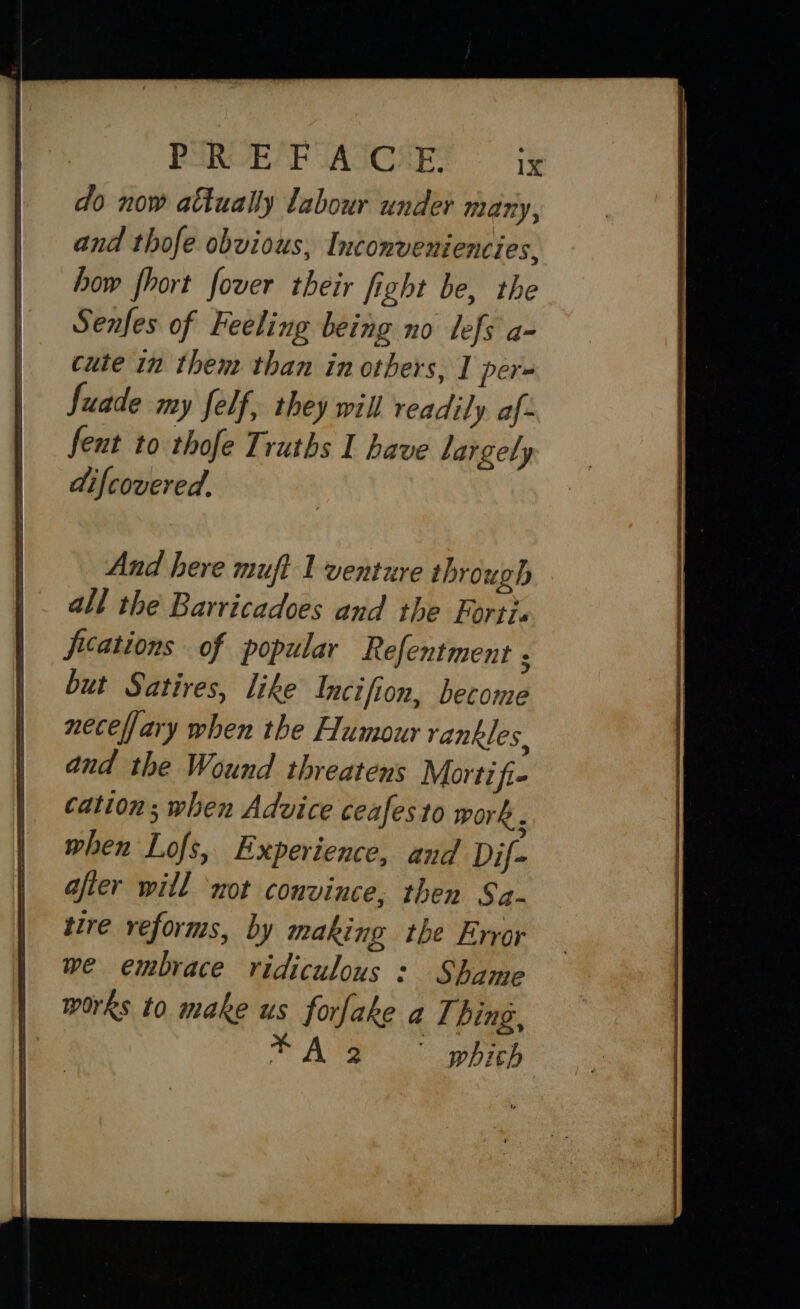 PREFACE. ix
do now actually labour under many,
and thoſe obvious, Inconveniencies,
how ſhort ſover their ſight be, the
Senſes of Feeling being no leſs a-
cute in them than in others, I per-
ſuade my ſelf, they will readily aſ-
ſent to thoſe Truths I have largely
diſcovered.
And here muſt I venture through
all the Barricadoes and the Forti-
fications of popular Reſentment;
but Satires, like Inciſion, become
neceſſary when the Humour rankles,
and the Wound threatens Mortifi-
cation; when Advice ceaſes to work,
when Loſs, Experience, and Diſ-
aſter will not convince, then Sa-
tire reforms, by making the Error
we embrace ridiculous: Shame
works to make us forſake a Thing,
*A 2 which